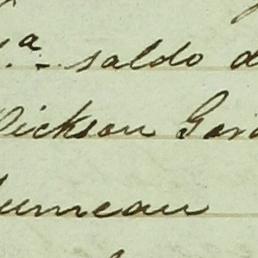 saldo d
Dickson Gord
umeau